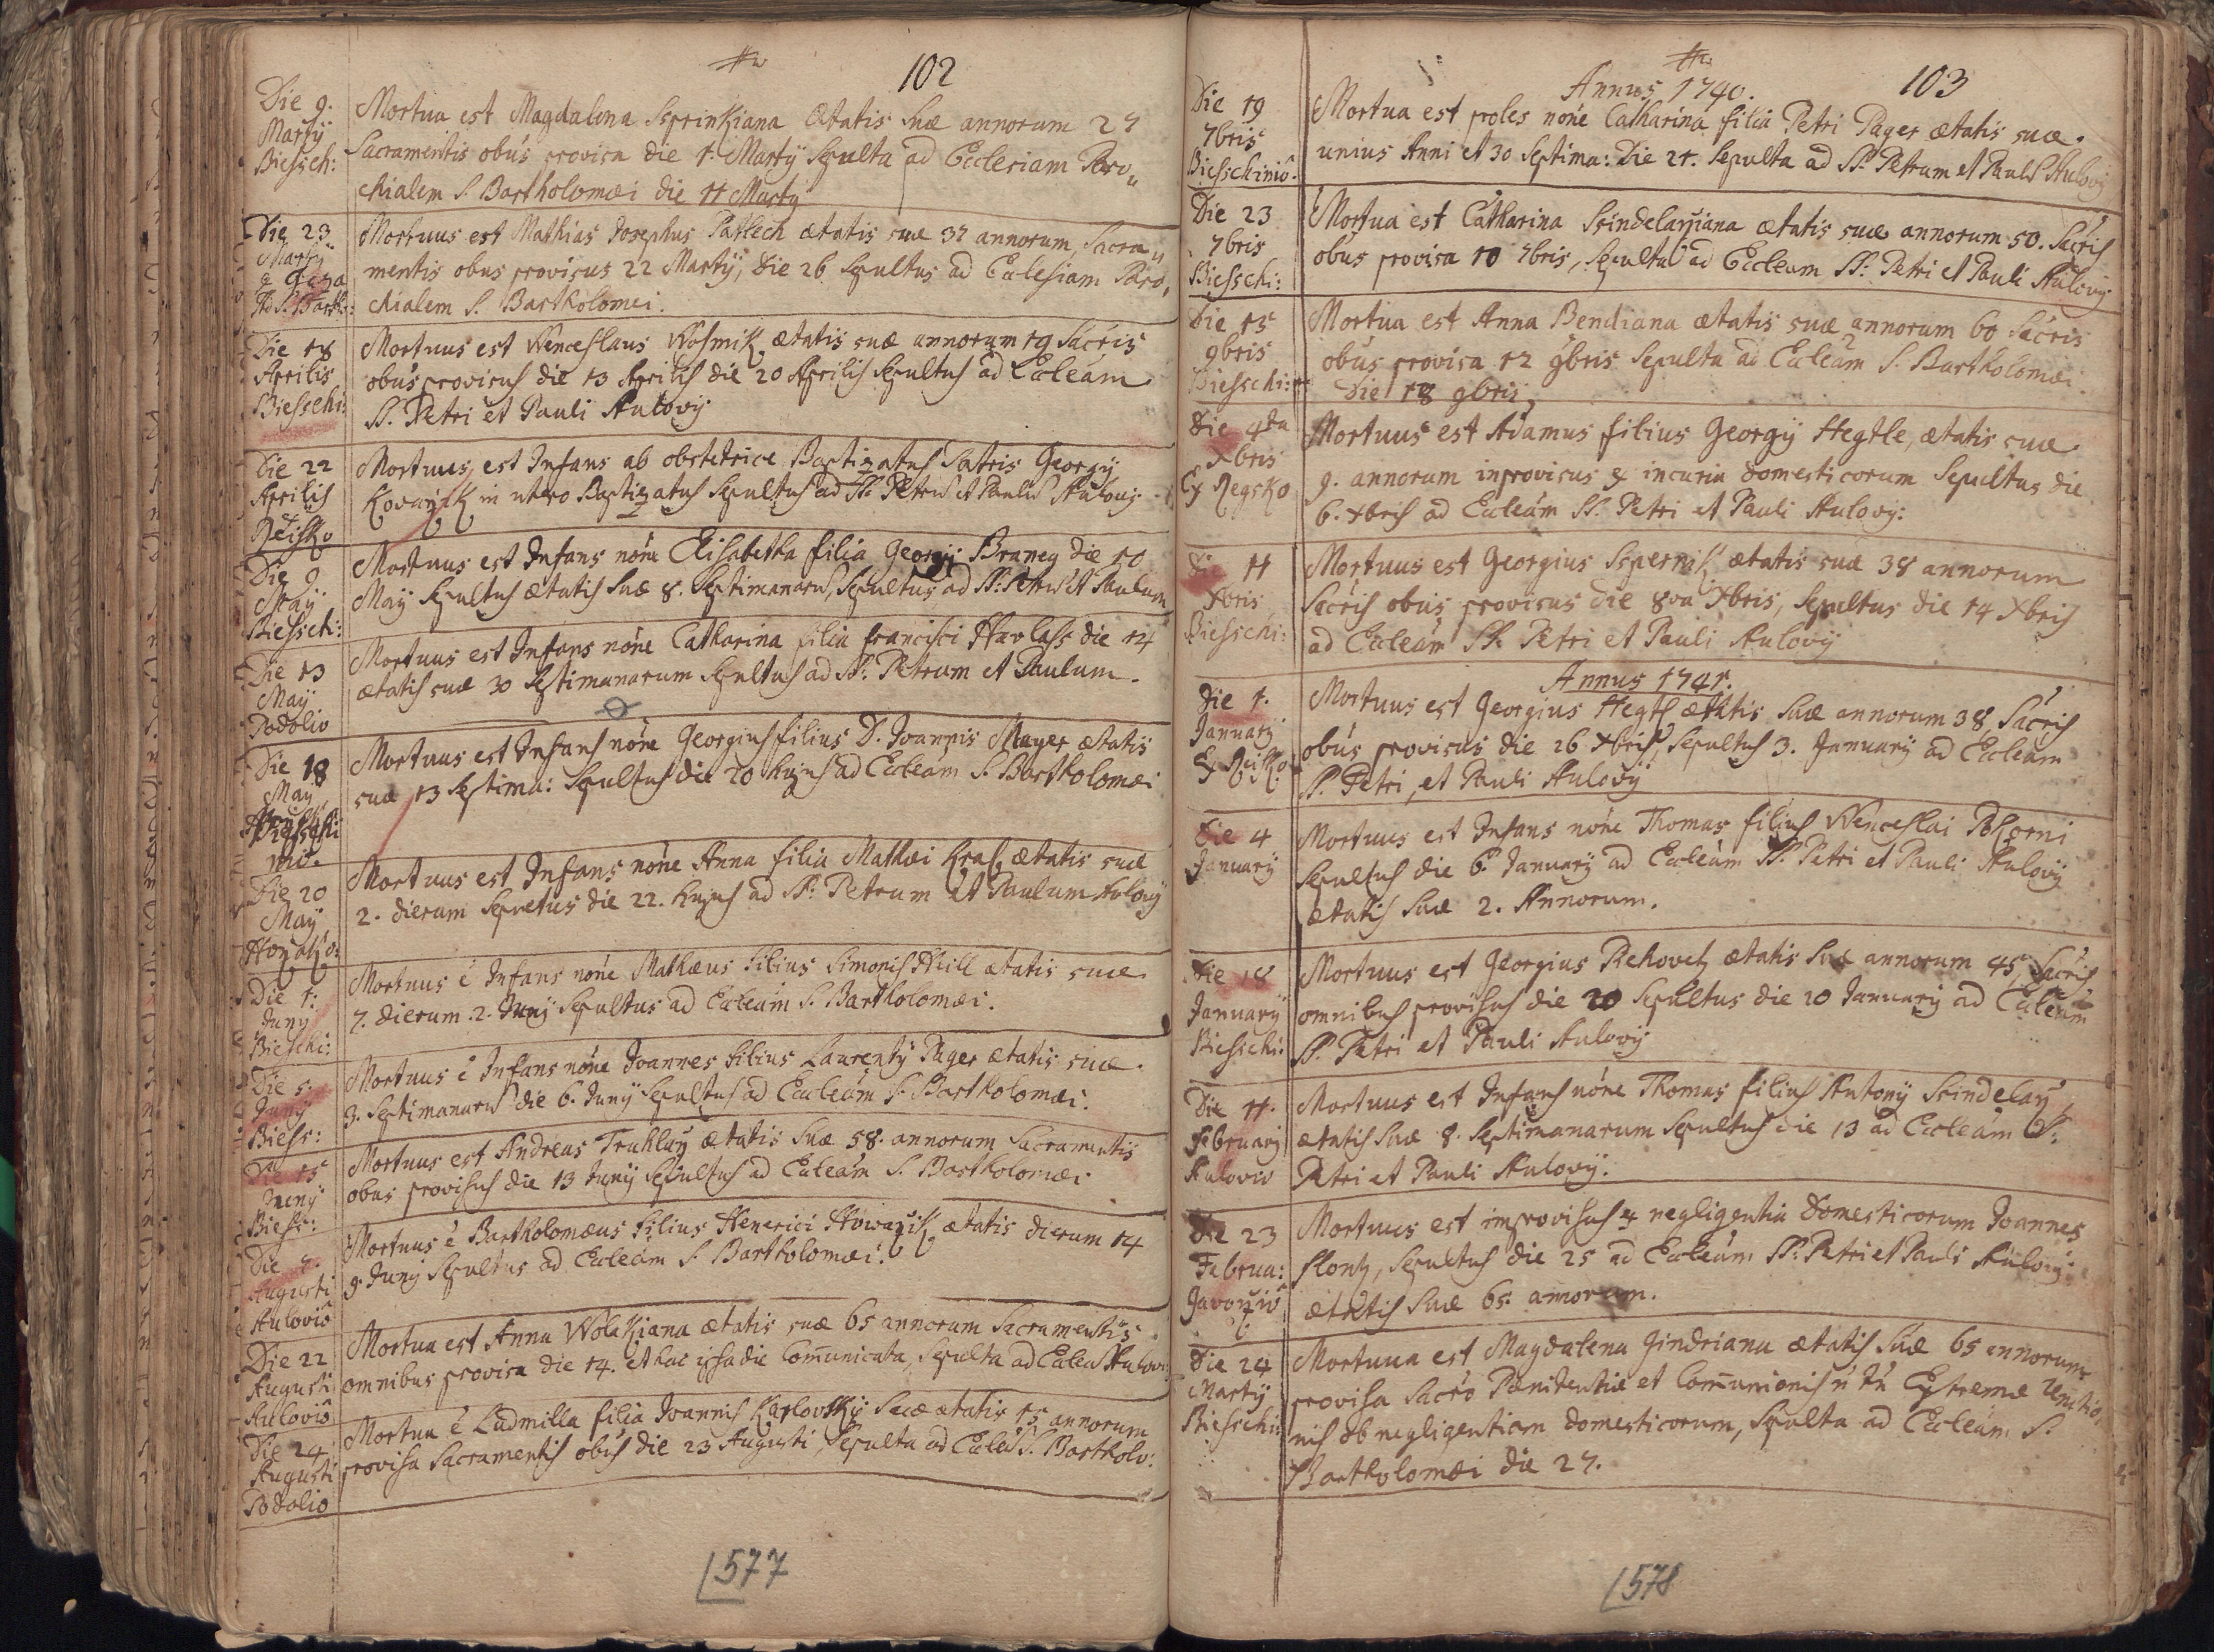 102
Die 9.
Martÿ
Biessch:
Mortua est Magdalena Ssprinkiana Ætatis Suæ annorum 27
Sacramentis obus provisa die 1. Martÿ Sepulta ad Ecclesiam Paro„
chialem S. Bartholomæi die 11 Martÿ
Die 23
Martÿ
Ad S. Barth:
Mortuus est Mathias Josephus Patlech ætatis suæ 37 annorum Sacra„
mentis obus provisus 22 Martÿ, Die 26 Sepultus ad Ecclesiam Paro„
chialem S. Bartholomei.
Die 18
Aprilis
Biesschi:
Mortuus est Wenceslaus Wosmik ætatis suæ annorum 19 Sacris
obus provisus die 13 Aprilis die 20 Aprilis Sepultus ad Eccleam
SS. Petri et Pauli Aulovÿ
Die 22
Aprilis
Mortuus est Infans ab obstetrice Baptizatus Patris Georgÿ
Kovarzik in utero Baptizatus Sepultus ad SS. Petru et Paulu Aulovÿ
Die 9
Maÿ
Biessch:
Mortuus est Infans nõne Elisabetha filia Georgÿ Braney die 10
Maÿ Sepultus ætatis Suæ 8. Septimanaru, Sepultus ad SS. Petru et Paulum
Die 13
Maÿ
Podolio
Mortuus est Infans nõne Catharina filia Francisci Havlass die 14
ætatis suæ 30 Septimanarum Sepultus ad SS. Petrum et Paulum.
Die 18
Maÿ
Mortuus est Infans nõne Georgius filius D. Joannis Mayer ætatis
suæ 13 Septima: Sepultus die 20 hujus ad Eccleam S. Bartholomæi
Die 20
Maÿ
Mortuus est Infans nõne Anna filia Mathæi Kras, ætatis suæ
2. dierum Sepultus die 22. hujus ad SS. Petrum et Paulum Aulovÿ
Die 1.
Junÿ
Bieschi:
Mortuus ẽ Infans nõne Mathæus filius Simonis Hrill ætatis suæ
7. dierum .2. Junÿ Sepultus ad Eccleam S. Bartholomæi.
Die 5.
Junÿ
Biess:
Mortuus ẽ Infans nõne Joannes filius Laurentÿ Pager ætatis suæ
3. Septimanaru die 6. Junÿ Sepultus ad Eccleam S. Bartholomæi.
Die 15
Junÿ
Biess:
Mortuus est Andreas Truhlarz ætatis Suæ 58. annorum Sacramentis
obus provisus die 13 Junÿ Sepultus ad Eccleam S. Bartholomæi
Die
Augusti
Aulovio
Mortuus ẽ Bartholomæus filius Henerici Howarzik, ætatis dierum 14
9. Junÿ Sepultus ad Eccleam S Bartholomæi.
Die 22
Augusti
Aulovio
Mortua est Anna Wolakiana ætatis suæ 65 annorum Sacramentis
omnibus provisa die 14. et hac ipsa die Com̃unicata, Sepulta ad Eccleã Aulovi
Die 24
Augusti
Podolio
Mortua ẽ Ludmilla filia Joannis Karlovskÿ Suæ ætatis 15 annorum
provisa Sacramentis obus die 23 Augusti, Sepulta ad Eccleã S. Bartholo:
577
103
Annus 1740.
Die 19
7bris
Biesschinio
Mortua est proles nõne Catharina filia Petri Pager ætatis suæ
unius Anni et 30 Septima: Die 21. Sepulta ad SS. Petrum et Paulu Aulovÿ
Die 23
7bris
Biesschi:
Mortua est Catharina Ssindelarziana ætatis suæ annorum 50. Sacris
obus provisa 10 7bris, Sepulta ad Eccleam SS: Petri et Pauli Aulovÿ.
Die 15
9bris
Biesschi:
Mortua est Anna Bendiana ætatis suæ annorum 60 Sacris
obus provisa 12 9bris Sepulta ad Eccleam S. Bartholomæi
Die 18 9bris,
Die 4ta
Xbris
Ex Regsko
Mortuus est Adamus filius Georgÿ Hegtle, ætatis suæ
9. annorum inprovisus ex incuria domesticorum Sepultus die
6. Xbris ad Eccleam SS. Petri et Pauli Aulovÿ:
Di 11
Xbris
Biesschi:
Mortuus est Georgius Sspernik ætatis suæ 38 annorum
Sacris obus provisus die 8va Xbris, Sepultus die 14 Xbris
ad Eccleam SS. Petri et Pauli Aulovÿ
Annus 1741.
Die 1.
Januarÿ
Mortuus est Georgius Hegtl ætatis Suæ annorum 38, Sacris
obus provisus die 26 Xbris, Sepultus 3. Januarÿ ad Eccleam
SS. Petri, et Pauli Aulovÿ
Die 4
Januarÿ
Mortuus est Infans nõne Thomas filius Wenceslai Pokorni
Sepultus die 6. Januarÿ ad Eccleam SS. Petri et Pauli Aulovÿ
ætatis Suæ 2. Annorum.
Die 18
Januarÿ
Biesschi:
Mortuus est Georgius Rehovetz ætatis Suæ annorum 45, Sacris
omnibus provisus die 20 Sepultus die 20 Januarÿ ad Eccleam
SS. Petri et Pauli Aulovÿ
Die 11.
Februarÿ
Aulovio
Mortuus est Infans nõne Thomas filius Antonÿ Ssindelarz
ætatis Suæ 8. Septimanarum Sepultus die 13 ad Eccleam SS:
Petri et Pauli Aulovÿ.
Die 23
Februa:
Javorzio
Mortuus est improvisus ex negligentia domesticorum Joannes
Slontz, Sepultus die 25 ad Eccleam SS: Petri et Pauli Aulovÿ:
ætatis Suæ 65. annorum.
Die 24
Martÿ
Biesschi:
Mortuua est Magdalena Jindriana ætatis Suæ 65 annorum
provisa Sacro Pœnitentiæ et Com̃unionis ñ tñ Extremæ Unctio„
nis ob negligentiam domesticorum, Sepulta ad Eccleam S.
Bartholomæi die 27.
578